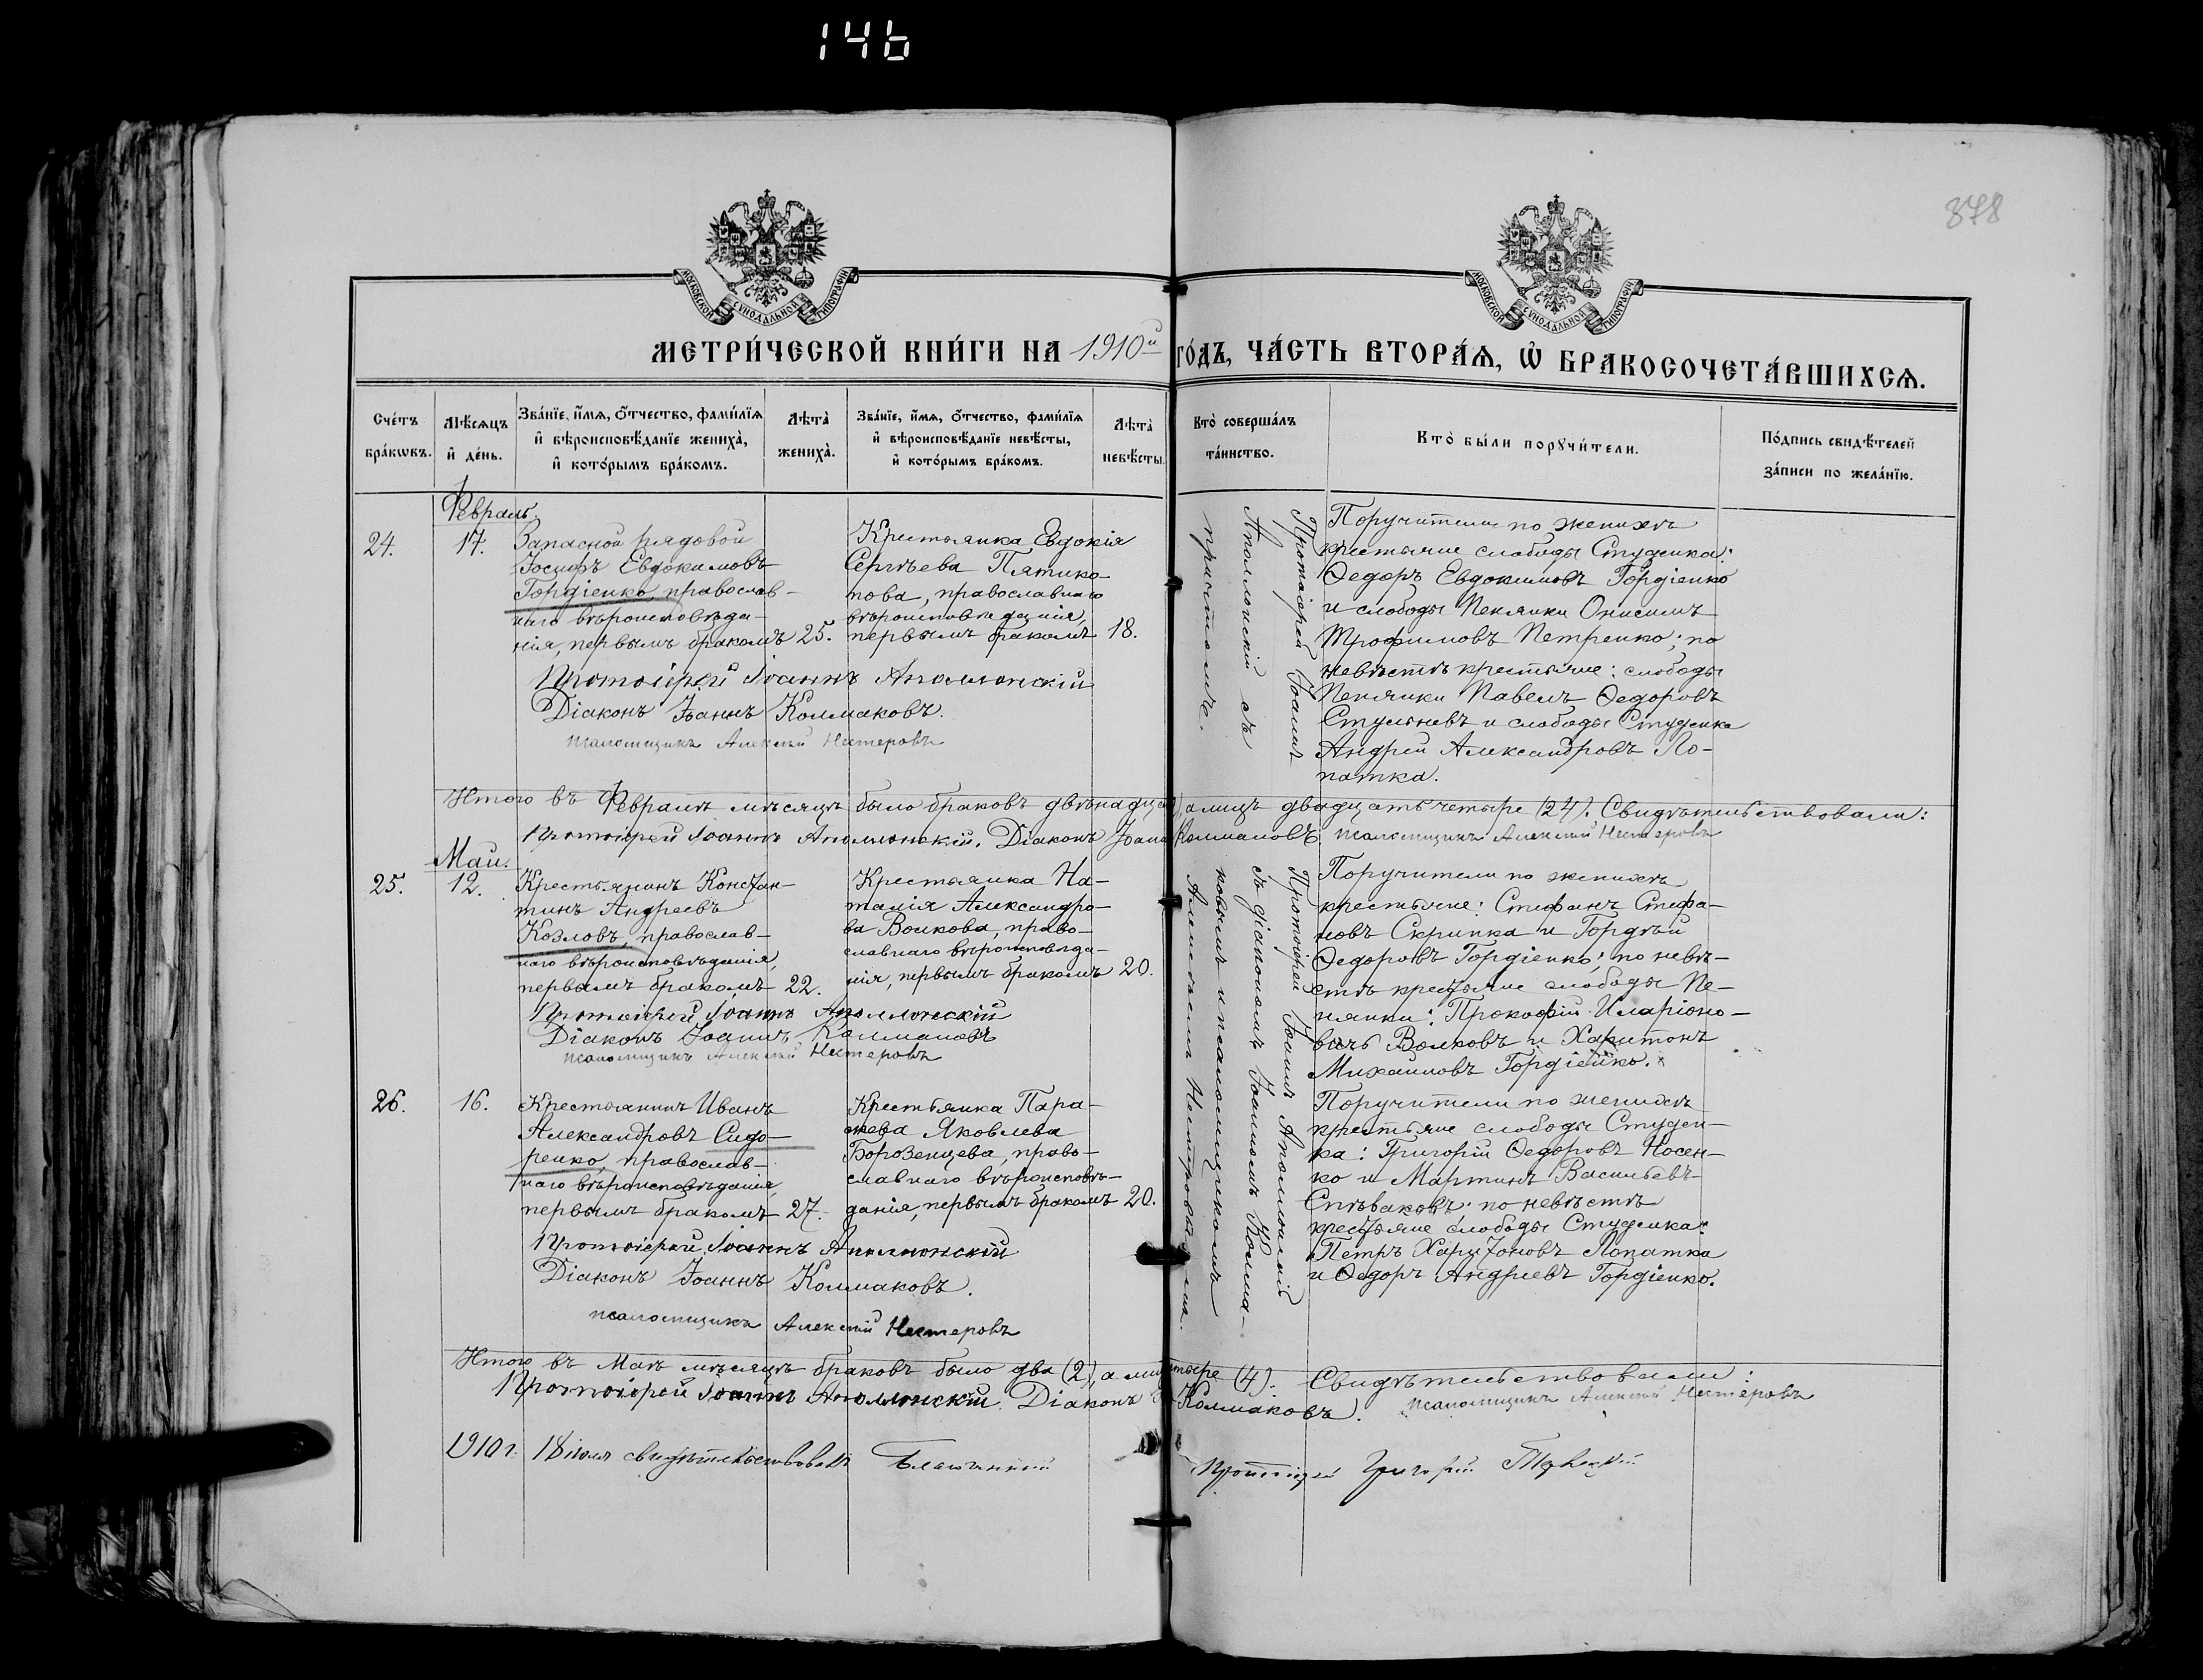 146
878
МОСКОВСКОЙ СѴНОДАЛЬНОЙ ТИПОГРАФІИ
МОСКОВСКОЙ СѴНОДАЛЬНОЙ ТИПОГРАФІИ
МЕТРИ́ЧЕСКОЙ КНИ́ГИ НА 1910й ГО́ДЪ, ЧА́СТЬ ВТОРА́Ѧ, Ѡ БРАКОСОЧЕТА́ВШИХСѦ.
Сче́тъ
бра́кѡвъ.
Мѣ́сяцъ
и҆ де́нь.
Зва́нїе, и҆́мѧ, ѻ҆́тчество, фами́лїѧ
и҆ вѣроисповѣ́данїе жениха̀,
и҆ кото́рымъ бра́комъ.
Лѣта̀
жениха̀.
Зва́нїе, и҆́мѧ, ѻ҆́тчество, фами́лїѧ
и҆ вѣроисповѣ́данїе невѣ́сты,
и҆ кото́рымъ бра́комъ.
Лѣта̀
невѣ́сты.
Кто̀ соверша́лъ
та́инство.
Кто̀ бы́ли порꙋчи́тели.
По́дпись свидѣ́телей
за́писи по жела́нїю.
Февраль.
24.
17.
Запасной рядовой
Іосифъ Евдокимовъ
Гордіенко, православ-
наго вѣроисповѣда-
нія, первымъ бракомъ
25.
Крестьянка Евдокія
Сергѣева Пятико-
пова, православнаго
вѣроисповѣданія,
первымъ бракомъ
18.
Протоіерей Іоаннъ
Аполлонскій съ
причтомъ.
Поручители по женихѣ
крестьяне слободы Студенка:
Ѳедоръ Евдокимовъ Гордіенко
и слободы Пенянки Онисимъ
Трофимовъ Петренко; по
невѣстѣ крестьяне: слободы
Пенянки Павелъ Ѳедоровъ
и слободы Студенка
Андрей Александровъ Ло-
патка.
Протоіерей Іоаннъ Аполлонскій
Діаконъ Іоаннъ Колмаковъ.
псаломщикъ Алексѣй Нестеровъ
Итого въ Февралѣ мѣсяцѣ было браковъ двѣнадца а лицъ двадцать четыре (24). Свидѣтельствовали:
Протоіерей Іоаннъ Аполлонскій. Діаконъ Іоаннъ Колмаковъ. псаломщикъ Алексѣй Нестеровъ
Май.
25.
12.
Крестьянинъ Констан-
тинъ Андреевъ
Козловъ, православ-
наго вѣроисповѣданія,
первымъ бракомъ
22.
Крестьянка На-
талія Александро-
ва Волкова, право-
славнаго вѣроисповѣда-
нія, первымъ бракомъ
20.
Протоіерей Іоаннъ Аполлонскій
съ діакономъ Іоанномъ Колма-
ковымъ и псаломщикомъ
Алексѣемъ Нестеровымъ.
Поручители по женихѣ
крестьяне: Стефанъ Стефа-
новъ Скрипка и Гордѣй
Ѳедоровъ Гордіенко; по невѣ-
стѣ крестьяне слободы Пе-
нянки: Прокофій Иларіоно-
вичъ Волковъ и Харитонъ
Михайловъ Гордіенко.
Протоіерей Іоаннъ Аполлонскій
Діаконъ Іоаннъ Колмаковъ
псаломщикъ Алексѣй Нестеровъ
26.
16.
Крестьянинъ Иванъ
Александровъ Сидо-
ренко, православ-
наго вѣроисповѣданія,
первымъ бракомъ
27.
Крестьянка Пара-
скева Яковлева
Борозенцева, право-
славнаго вѣроисповѣ-
данія, первымъ бракомъ
20.
Поручители по женихѣ
крестьяне слободы Студен-
ка: Григорій Ѳедоровъ Носен-
ко и Мартинъ Васильевъ
Спѣваковъ; по невѣстѣ
крестьяне слободы Студенка:
Петръ Харитоновъ Лопатка
и Ѳедоръ Андреевъ Гордіенко.
Протоіерей Іоаннъ Аполлонскій
Діаконъ Іоаннъ Колмаковъ.
псаломщикъ Алексѣй Нестеровъ
Итого въ Маѣ мѣсяцѣ браковъ было два (2), а лицъ четыре (4). Свидѣтельствовали:
Протоіерей Іоаннъ Аполлонскій. Діаконъ Колмаковъ. псаломщикъ Алексѣй Нестеровъ
1910 г. 18 іюля свидѣтельствовалъ Благочинный Протоіерей Григорій